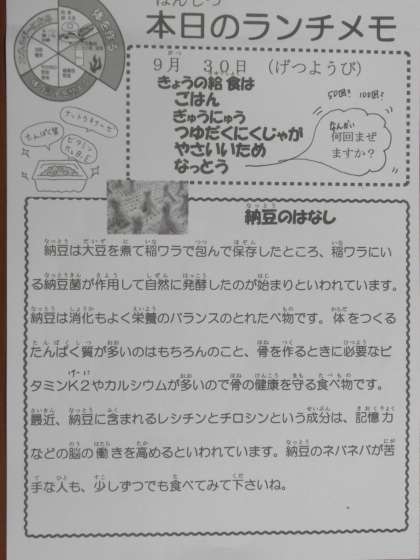 本日のランチメモ
9月 30日 (げつようび)
きょうの給食は
ごはん
ぎゅうにゅう
つゆだくにくじゃが
やさいいため
なっとう
50回? 100回?
何回まぜ
ますか?
ナットウキナーゼ
たんぱく質
ビタミン
体を作る
納豆のはなし
納豆は大豆を煮て稲ワラで包んで保存したところ、稲ワラにい
る納豆菌が作用して自然に発酵したのが始まりといわれています。
納豆は消化もよく栄養のバランスのとれたべ物です。体をつくる
たんぱく質が多いのはもちろんのこと、骨を作るときに必要なビ
タミンK2やカルシウムが多いので骨の健康を守る食べ物です。
最近、納豆に含まれるレシチンとチロシンという成分は、記憶力
などの脳の働きを高めるといわれています。納豆のネバネバが苦
手な人も、少しずつでも食べてみて下さいね。